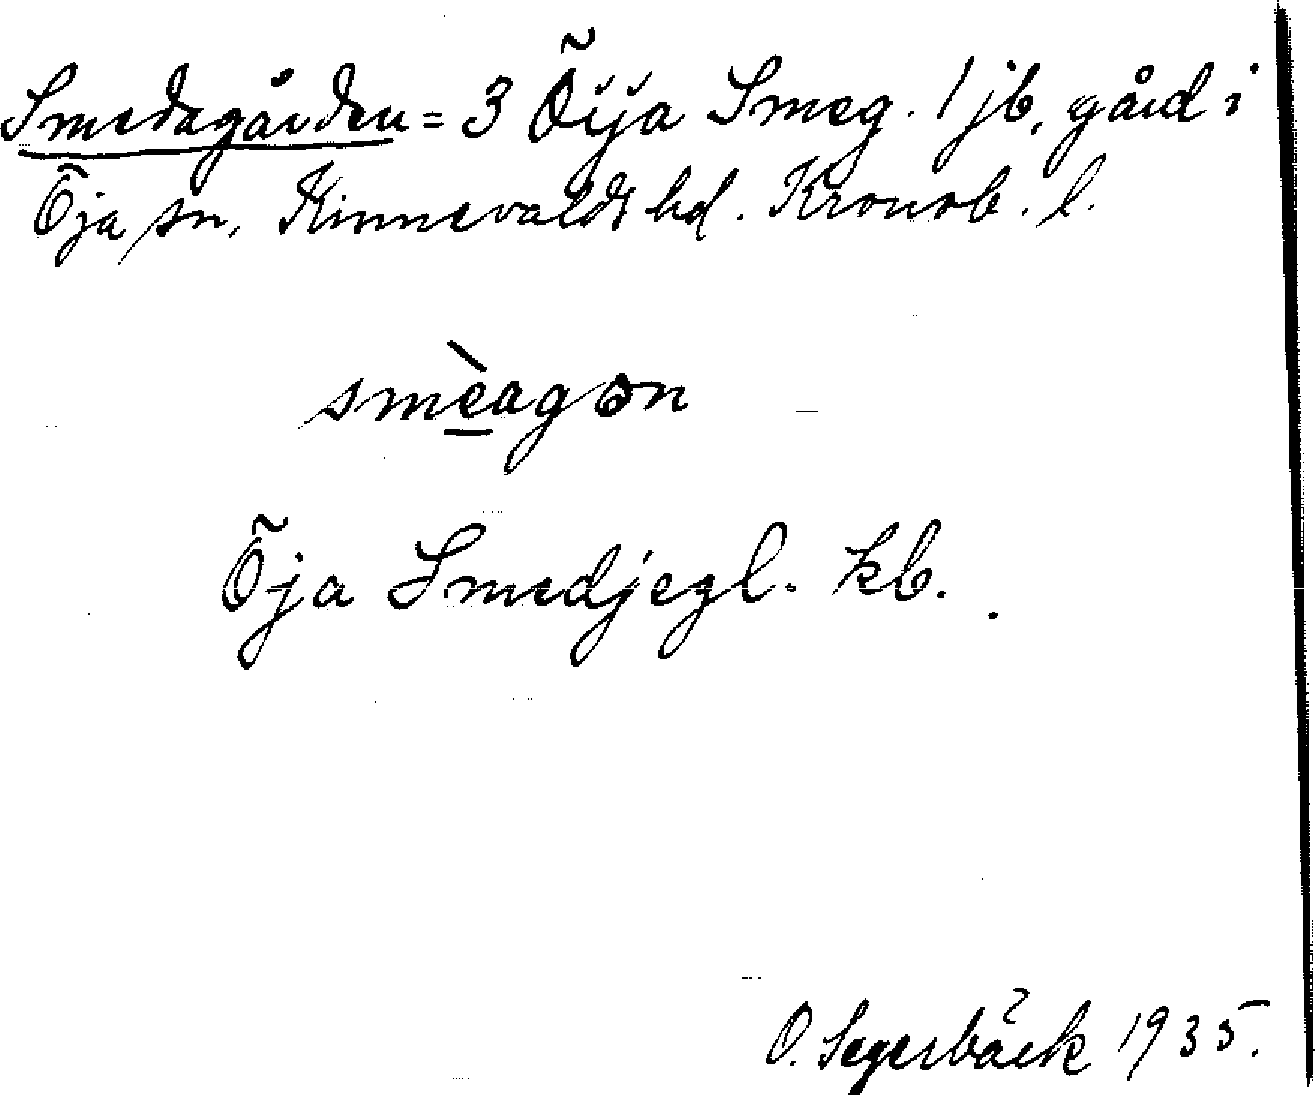 Smedagården = 3 Öija Smeg. 1 jb, gård i
Öja sn, Kinnevalds hd. Kronob. l.
smèagơn
Öja Smedjegl. kb.
O. Segerbäck 1935.